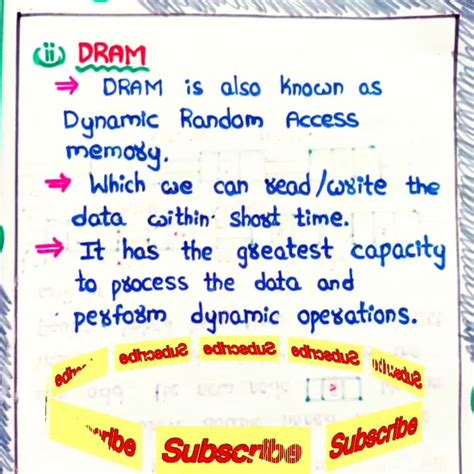 (ii) DRAM
⇒ DRAM is also known as
Dynamic Random Access
memory.
⇒ Which we can read/write the
data within short time.
⇒ It has the greatest capacity
to process the data and
perform dynamic operations.
Subscribe Subscribe Subscribe
Subscribe Subscribe
Subscribe Subscribe